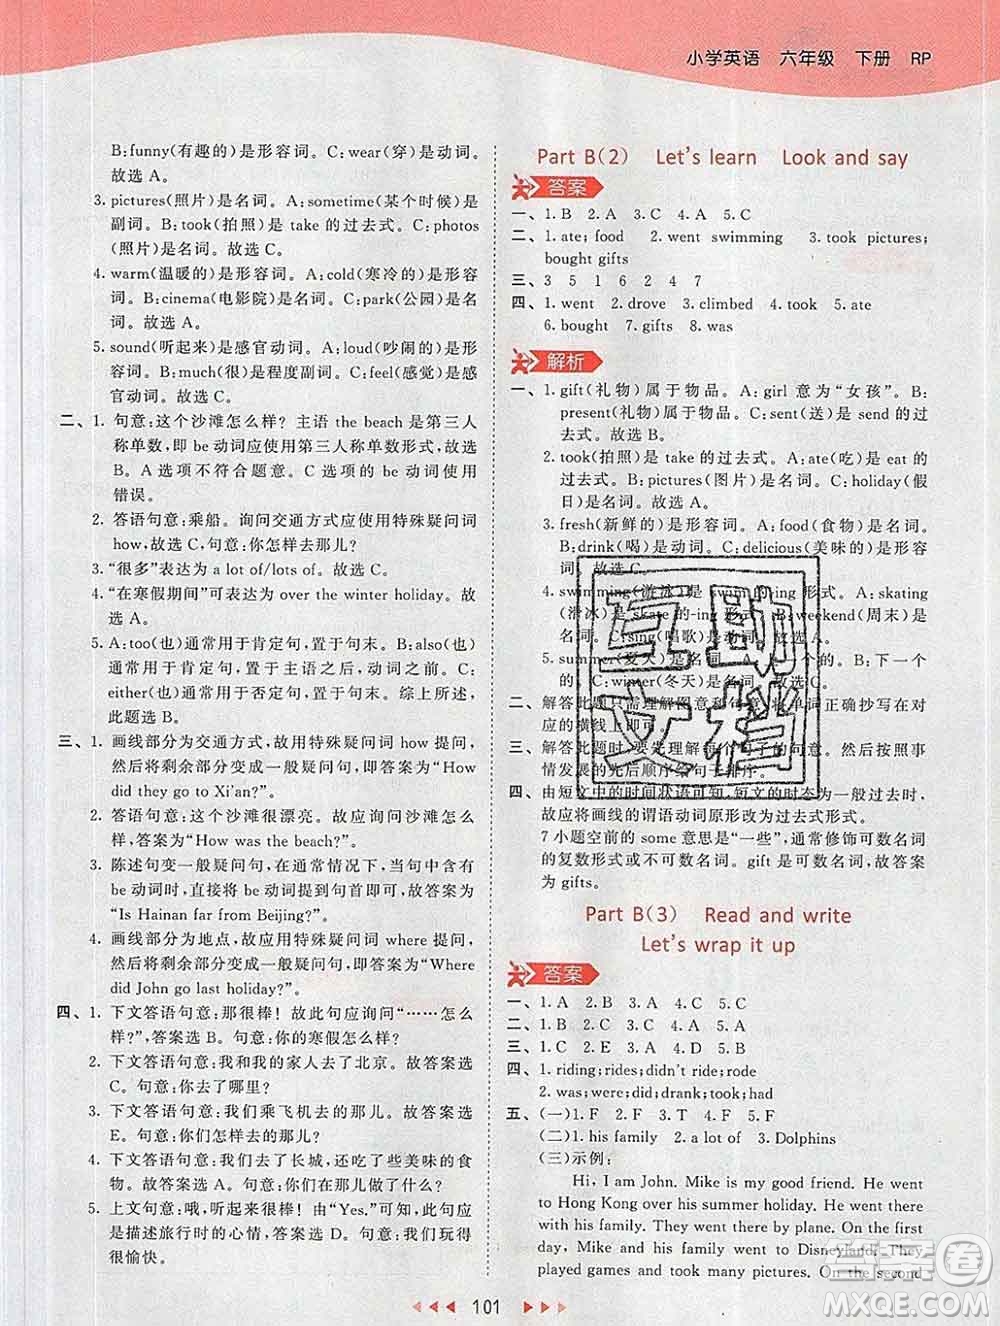 小学英语 六年级 下册 RP
B:funny(有趣的)是形容词。C:wear(穿)是动词。
故选 A。
3. pictures(照片)是名词。A:sometime(某个时候)是
副词。B:took(拍照)是 take 的过去式。C:photos
(照片)是名词。故选 C。
4. warm(温暖的)是形容词。A:cold(寒冷的)是形容
词。B:cinema(电影院)是名词。C:park(公园)是名
词。故选 A。
5. sound(听起来)是感官动词。A:loud(吵闹的)是形容
词。B:much(很)是程度副词。C:feel(感觉)是感官
动词。故选 C。
二、1. 句意:这个沙滩怎么样?主语 the beach 是第三人
称单数,即 be 动词应使用第三人称单数形式,故选
B。A 选项不符合题意。C 选项的 be 动词使用
错误。
2. 答语句意:乘船。询问交通方式应使用特殊疑问词
how,故选 C。句意:你怎样去那儿?
3. “很多”表达为 a lot of/lots of。故选 C。
4. “在寒假期间”可表达为 over the winter holiday。故
选 A。
5. A:too(也)通常用于肯定句,置于句末。B:also(也)
通常用于肯定句,置于主语之后,动词之前。C:
either(也)通常用于否定句,置于句末。综上所述,
此题选 B。
三、1. 画线部分为交通方式,故用特殊疑问词 how 提问,
然后将剩余部分变成一般疑问句,即答案为“How
did they go to Xi’an?”。
2. 答语句意:这个沙滩很漂亮。故应询问沙滩怎么
样,答案为“How was the beach?”。
3. 陈述句变一般疑问句,在通常情况下,当句中含有
be 动词时,直接将 be 动词提到句首即可,故答案为
“Is Hainan far from Beijing?”。
4. 画线部分为地点,故应用特殊疑问词 where 提问,
然后将剩余部分变成一般疑问句,故答案为“Where
did John go last holiday?”。
四、1. 下文答语句意:那很棒!故此句应询问“……怎么
样?”,答案选 B。句意:你的寒假怎么样?
2. 下文答语句意:我和我的家人去了北京。故答案选
C。句意:你去了哪里?
3. 下文答语句意:我们乘飞机去的那儿。故答案选
E。句意:你们怎样去的那儿?
4. 下文答语句意:我们去了长城,还吃了些美味的食
物。故答案选 A。句意:你们做了什么?
5. 上文句意:哦,听起来很棒!由“Yes.”可知,此句应
是描述旅行时的心情,答案选 D。句意:我们玩得
很愉快。
Part B(2) Let’s learn Look and say
答案
一、1. B 2. A 3. C 4. A 5. C
二、1. ate; food 2. went swimming 3. took pictures;
bought gifts
三、3 5 1 6 2 4 7
四、1. went 2. drove 3. climbed 4. took 5. ate
6. bought 7. gifts 8. was
解析
一、1. gift(礼物)属于物品。A: girl 意为“女孩”。B:
present(礼物)属于物品。C:sent(送)是 send 的过
去式。故选 B。
2. took(拍照)是 take 的过去式。A:ate(吃)是 eat 的
过去式。B:pictures(图片)是名词。C:holiday(假
日)是名词。故选 A。
3. fresh(新鲜的)是形容词。A:food(食物)是名词。
B:drink(喝)是动词。C:delicious(美味的)是形容
词。故选 C。
4. swimming(游泳)是 swim 的-ing 形式。A:skating
(滑冰)是 skate 的-ing 形式。B:weekend(周末)是
名词。C:sing(唱歌)是动词。故选 A。
5. summer(夏天)是
的。C:winter(冬天)是名词。故选 C。
二、解答此题只需理解图意和句意,将单词正确抄写在对
应的横线上即可。
三、解答此题时,要先理解每个句子的句意。然后按照事
情发展的先后顺序给句子排序。
四、由短文中的时间状语可知,短文的时态为一般过去时,
故应将画线的谓语动词原形改为过去式形式。
7 小题空前的 some 意思是“一些”,通常修饰可数名词
的复数形式或不可数名词。gift 是可数名词,故答案
为 gifts。
Part B(3) Read and write
Let’s wrap it up
答案
一、1. A 2. B 3. A 4. C 5. C
二、1. C 2. C 3. A 4. B 5. A
三、1. C 2. E 3. A 4. D 5. B
四、1. riding;rides;didn’t ride;rode
2. was;were;did;drank;took;had
五、(一)1. F 2. F 3. T 4. F 5. F
(二)1. his family 2. a lot of 3. Dolphins
(三)示例:
Hi, I am John. Mike is my good friend. He went
to Hong Kong over his summer holiday. He went there
with his family. They went there by plane. On the first
day, Mike and his family went to Disneyland. They
played games and took many pictures. On the second
101
互助
文档
答案卷
MXQE.COM